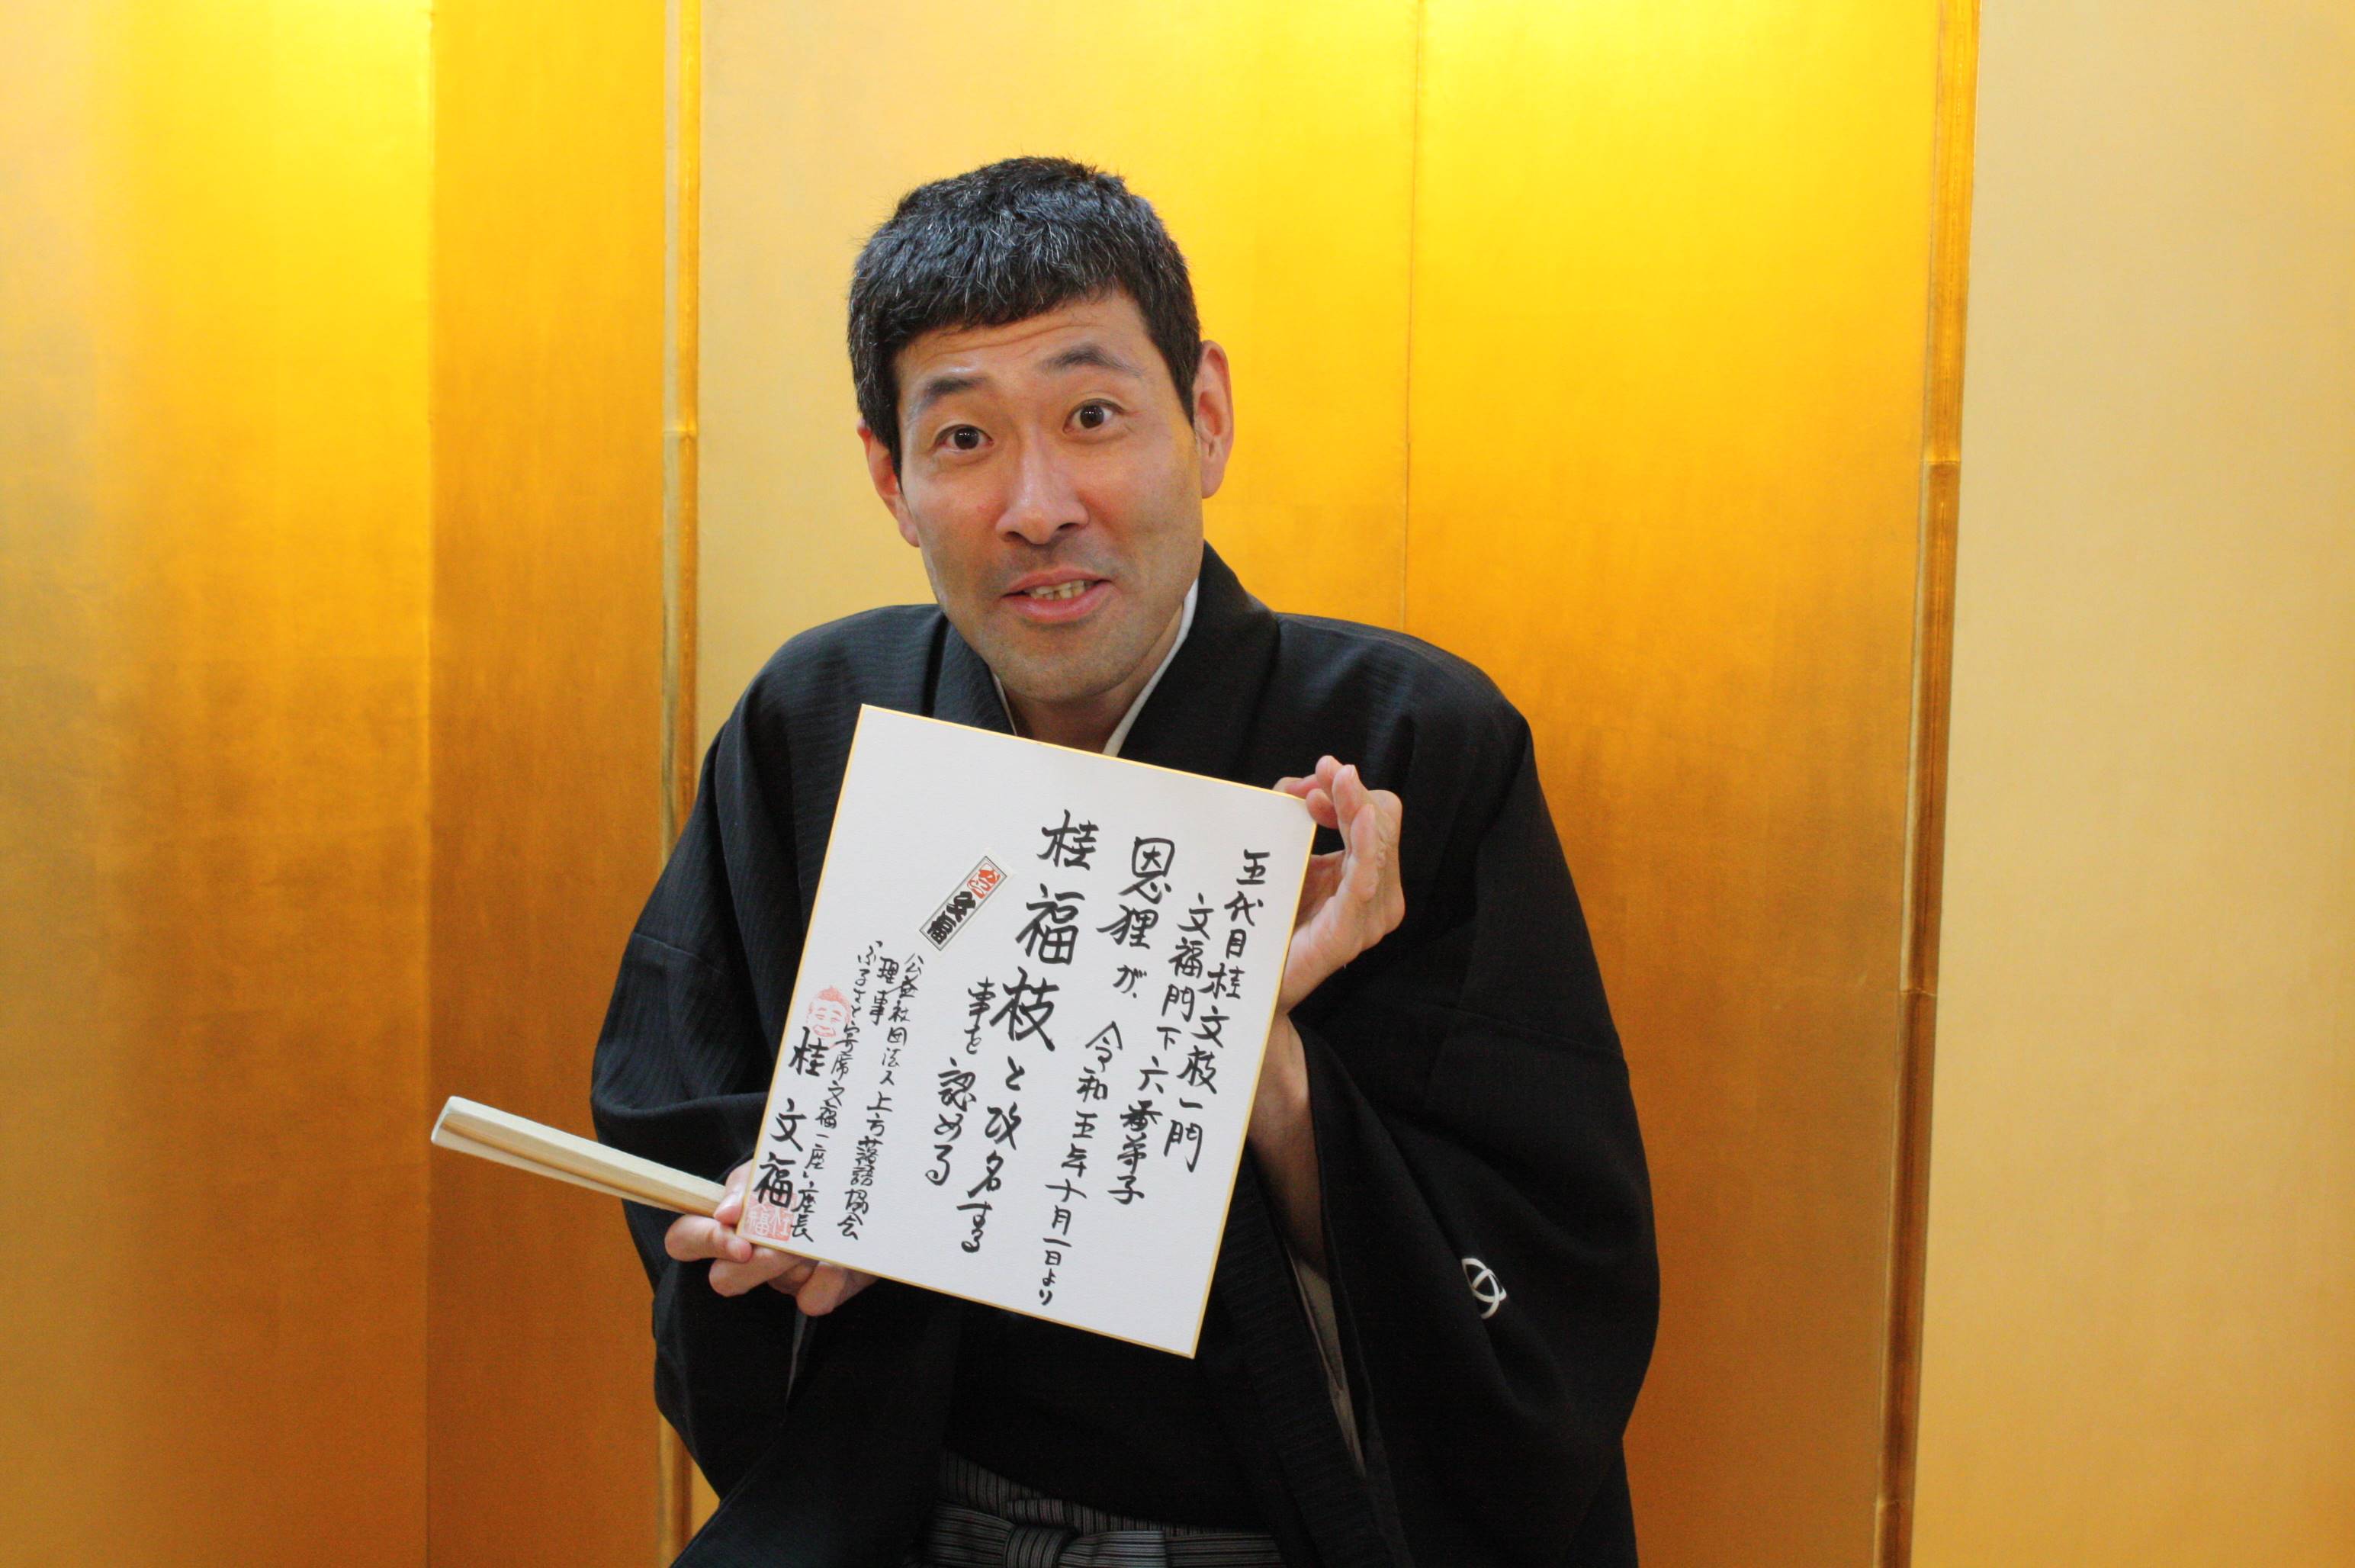 五代目桂文枝一門
文福門下六番弟子
恩狸が、令和五年十月一日より
桂福枝と改名する
事を認める
文福
公益社団法人上方落語協会
理事
ふるさと寄席文福一座い座長
桂文福